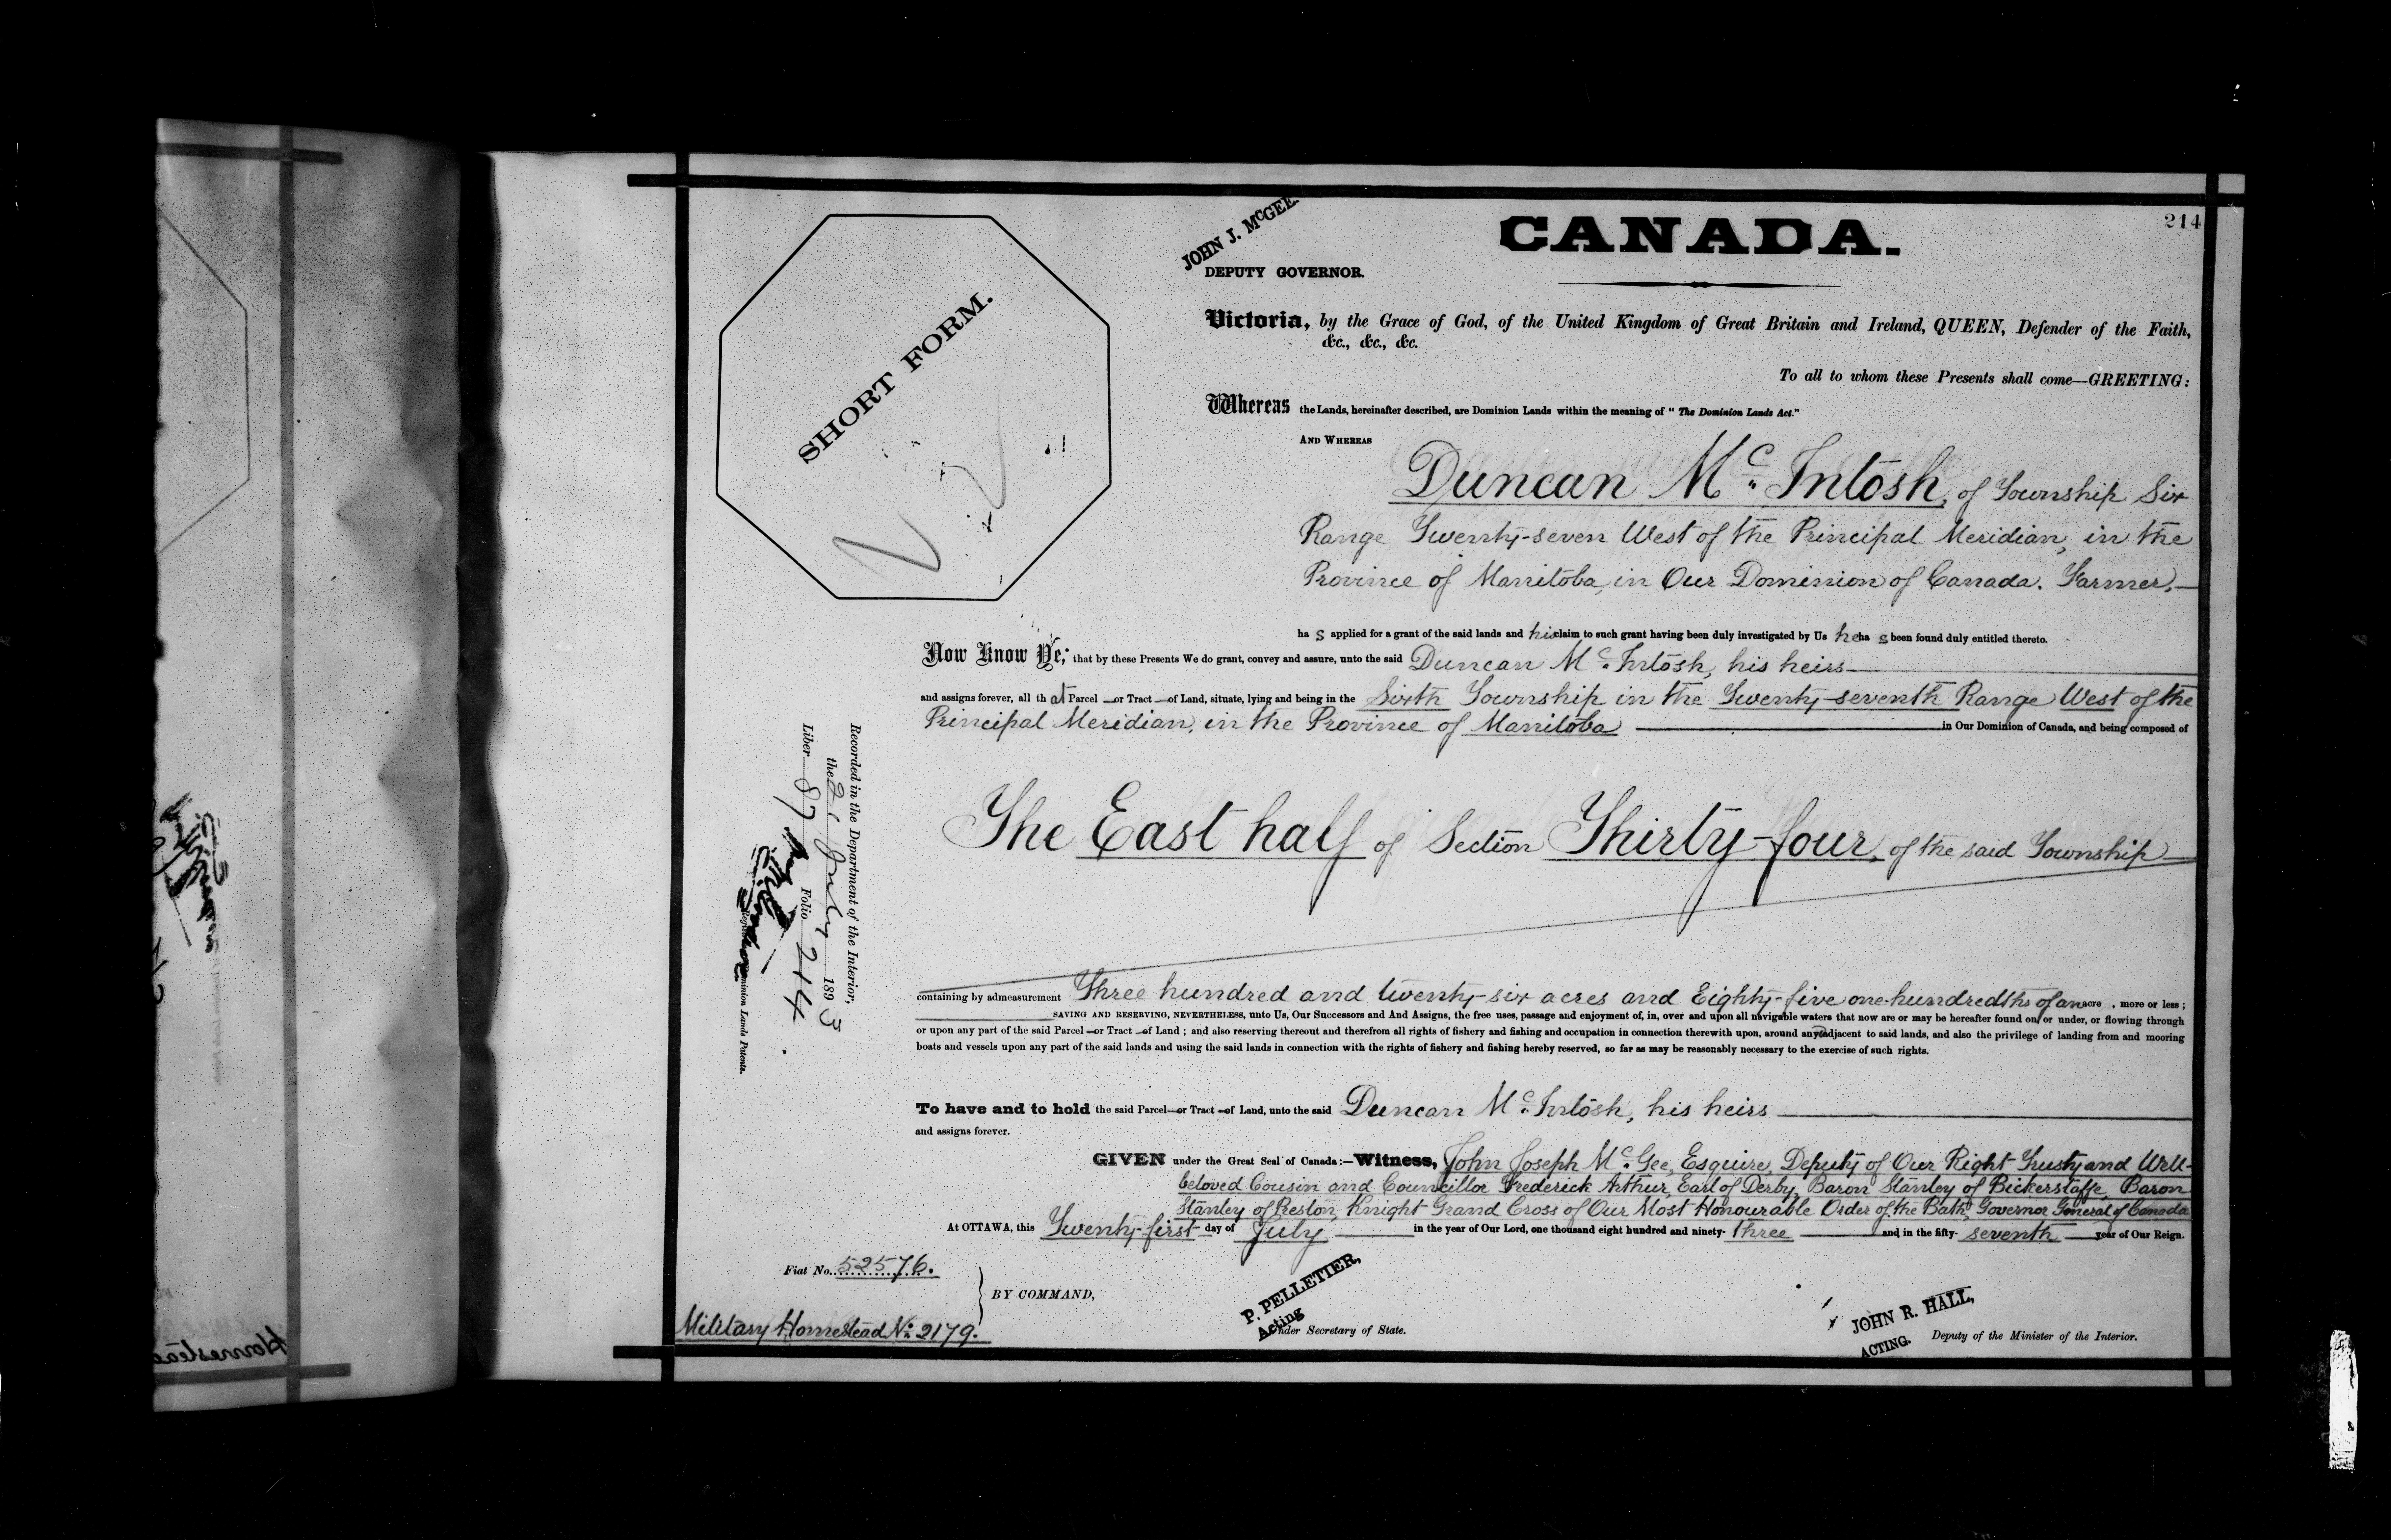 214
CANADA.
JOHN J. McGEE.
DEPUTY GOVERNOR.
SHORT FORM.
Victoria, by the Grace of God, of the United Kingdom of Great Britain and Ireland, QUEEN, Defender of the Faith,
&c., &c., &c.
To all to whom these Presents shall come—GREETING:
Whereas the Lands, hereinafter described, are Dominion Lands within the meaning of "The Dominion Lands Act."
AND WHEREAS
Duncan Mc. Intosh, of Township Six
Range Twenty-seven West of the Principal Meridian, in the
Province of Manitoba, in Our Dominion of Canada. Farmer,—
ha s applied for a grant of the said lands and his claim to such grant having been duly investigated by Us he ha s been found duly entitled thereto.
Now Know Ye, that by these Presents We do grant, convey and assure, unto the said Duncan Mc. Intosh, his heirs
and assigns forever, all th at Parcel or Tract of Land, situate, lying and being in the Sixth Township in the Twenty-seventh Range West of the
Principal Meridian, in the Province of Manitoba in Our Dominion of Canada, and being composed of
The East half of Section Thirty-four, of the said Township
containing by admeasurement Three hundred and twenty-six acres and Eighty-five one-hundredths of an acre, more or less;
SAVING AND RESERVING, NEVERTHELESS, unto Us, Our Successors and And Assigns, the free uses, passage and enjoyment of, in, over and upon all navigable waters that now are or may be hereafter found on, or under, or flowing through
or upon any part of the said Parcel or Tract of Land; and also reserving thereout and therefrom all rights of fishery and fishing and occupation in connection therewith upon, around and adjacent to said lands, and also the privilege of landing from and mooring
boats and vessels upon any part of the said lands and using the said lands in connection with the rights of fishery and fishing hereby reserved, so far as may be reasonably necessary to the exercise of such rights.
To have and to hold the said Parcel or Tract of Land, unto the said Duncan Mc. Intosh, his heirs
and assigns forever.
GIVEN under the Great Seal of Canada:—Witness, John Joseph Mc. Gee, Esquire, Deputy of Our Right Trusty and Well-
beloved Cousin and Councillor Frederick Arthur, Earl of Derby, Baron Stanley of Bickerstaffe, Baron
Stanley of Preston, Knight Grand Cross of Our Most Honourable Order of the Bath, Governor General of Canada
At OTTAWA, this Twenty-first day of July in the year of Our Lord, one thousand eight hundred and ninety-three and in the fifty-seventh year of Our Reign.
Fiat No. 52576.
BY COMMAND,
Military Homestead No. 2179.
P. PELLETIER,
Acting
Under Secretary of State.
JOHN R. HALL,
ACTING. Deputy of the Minister of the Interior.
Recorded in the Department of the Interior,
the 21 July 1893
Liber 87 Folio 214
Dominion Lands Patents.
Homestead